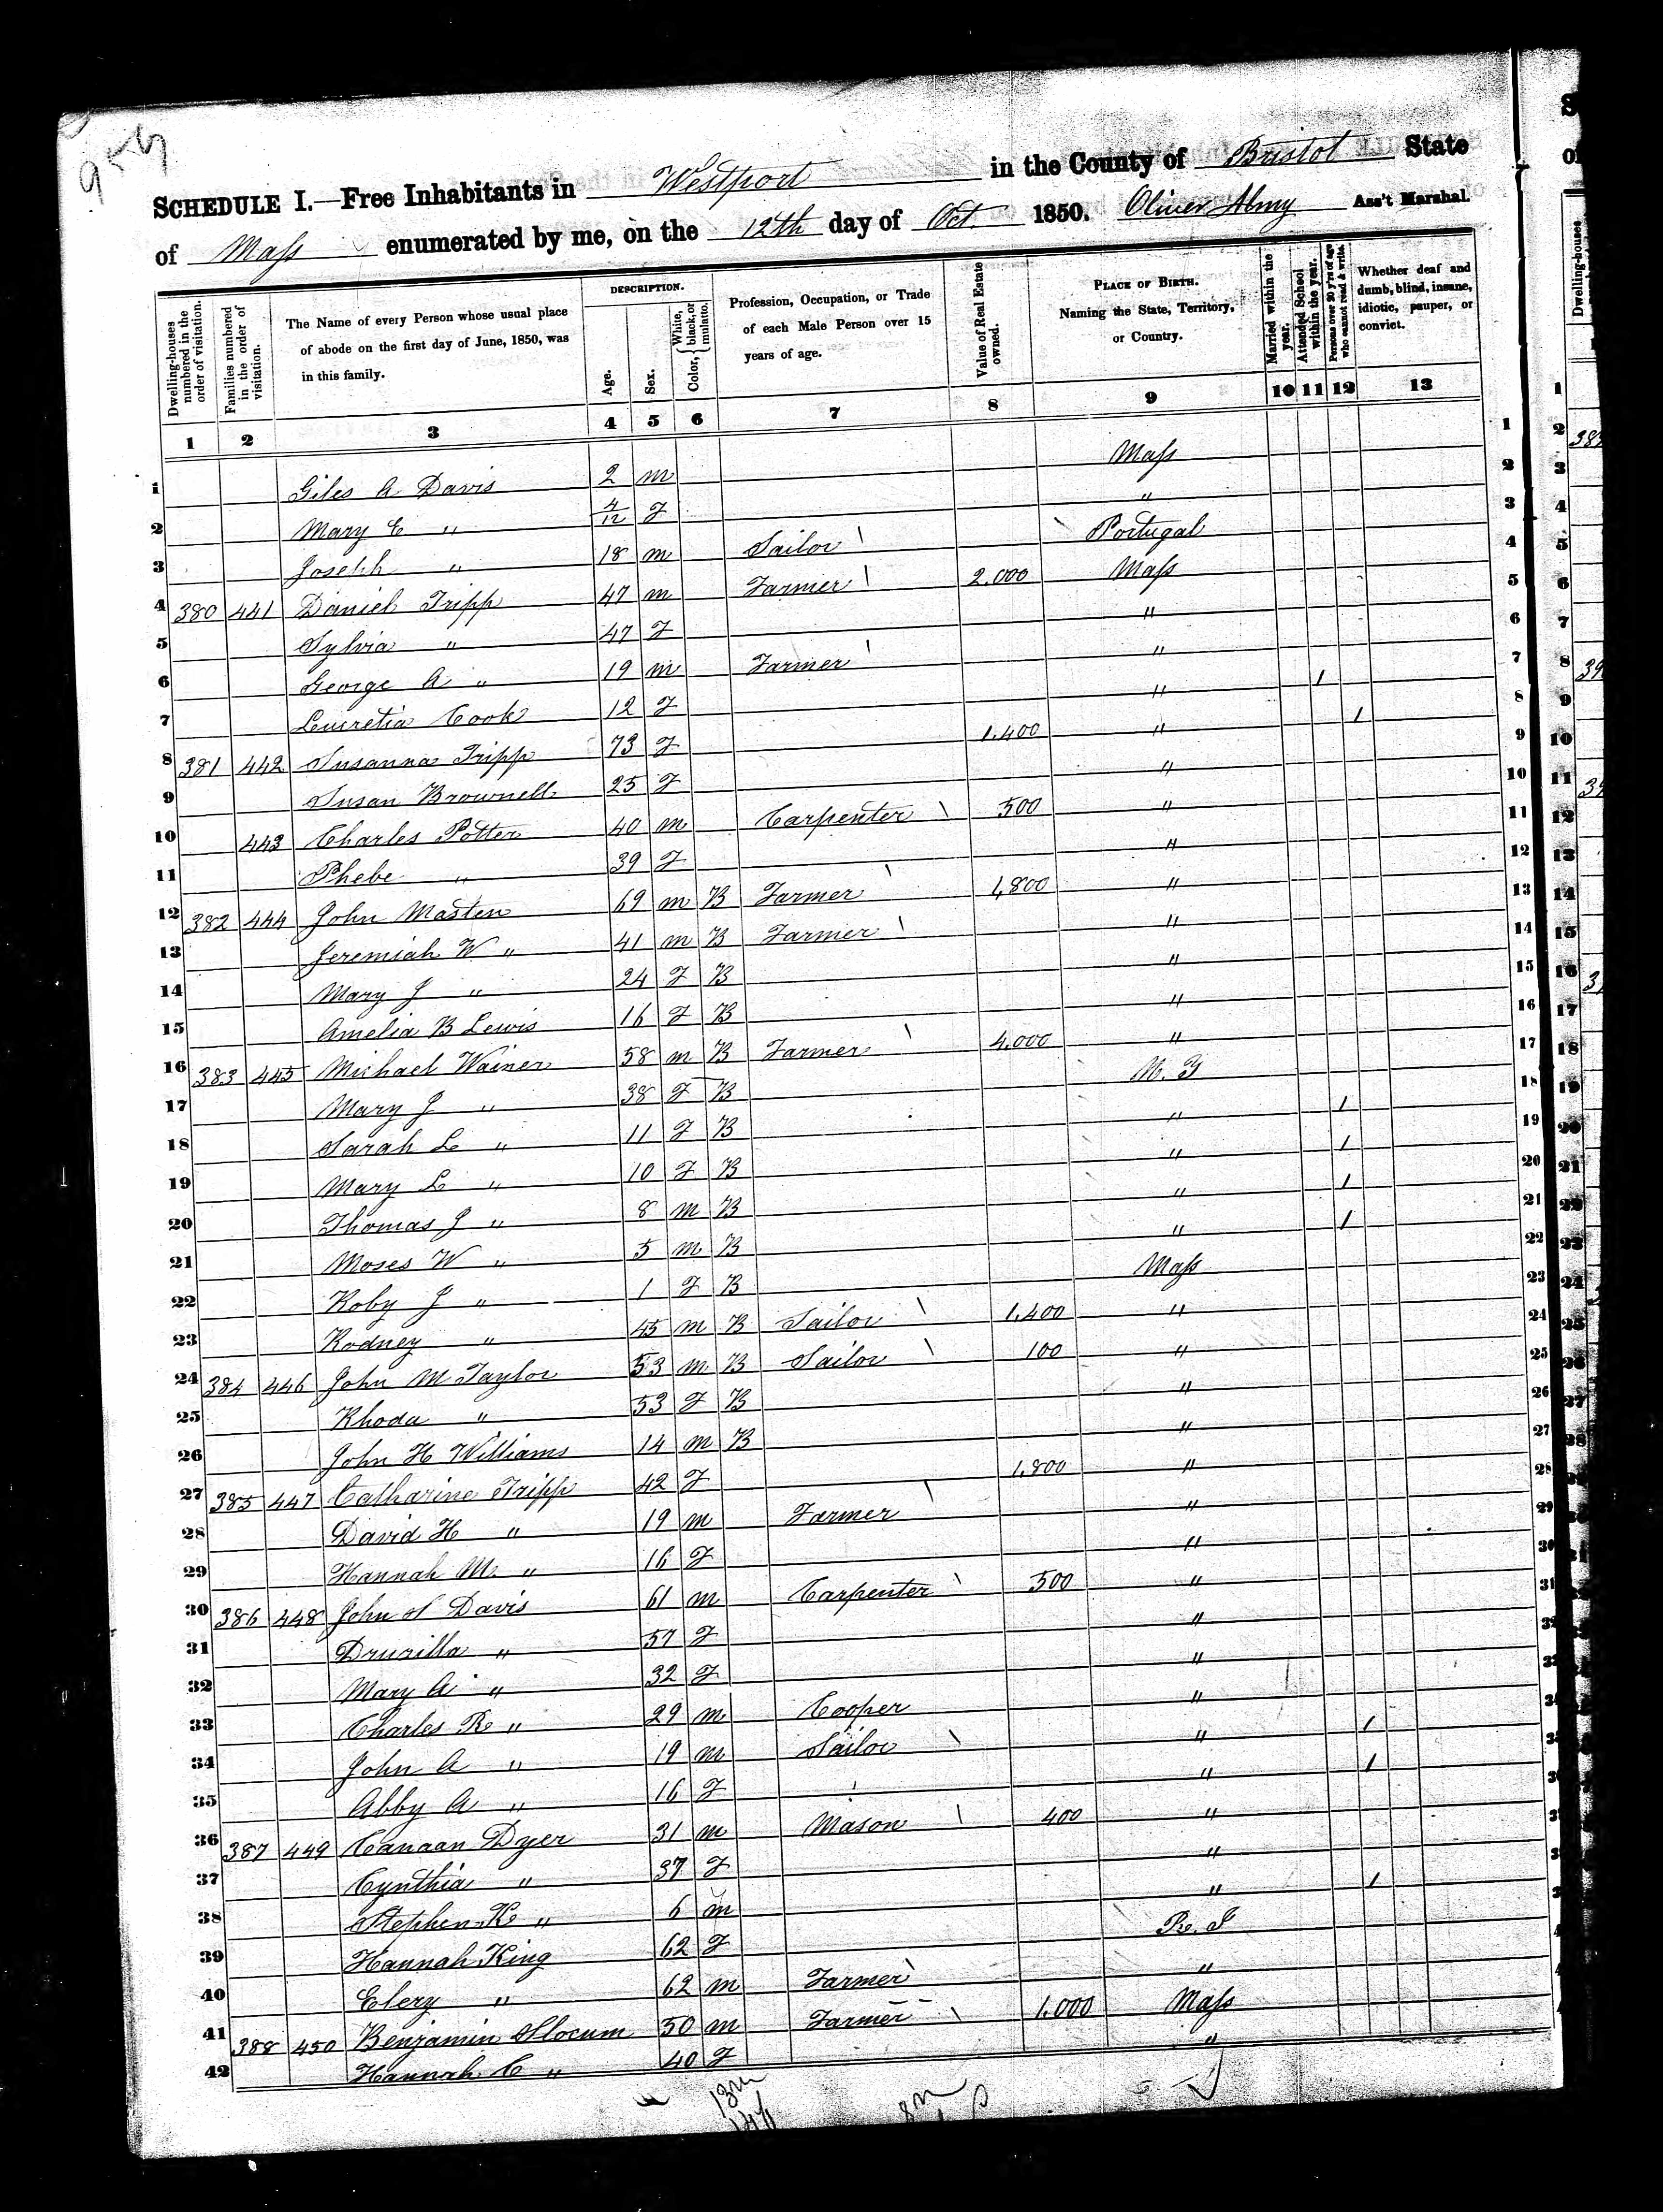 954
SCHEDULE I.—Free Inhabitants in Westport in the County of Bristol State
of Mass enumerated by me, on the 12th day of Oct. 1850. Oliver Almy Ass't Marshal.
Dwelling-houses numbered in the order of visitation.
Families numbered in the order of visitation.
The Name of every Person whose usual place of abode on the first day of June, 1850, was in this family.
DESCRIPTION.
Age.
Sex.
Color, { White, black, or mulatto.
Profession, Occupation, or Trade of each Male Person over 15 years of age.
Value of Real Estate owned.
PLACE OF BIRTH. Naming the State, Territory, or Country.
Married within the year.
Attended School within the year.
Persons over 20 y'rs of age who cannot read & write.
Whether deaf and dumb, blind, insane, idiotic, pauper, or convict.
1 2 3 4 5 6 7 8 9 10 11 12 13
1 Giles A Davis 2 m Mass 1
2 Mary E " 4/12 F " 2
3 Joseph " 18 m Sailor Portugal 3
4 380 441 Daniel Tripp 47 m Farmer 2,000 Mass 4
5 Sylvia " 47 F " 5
6 George A " 19 m Farmer " 6
7 Lucretia Cook 12 F " 1 7
8 381 442 Susanna Tripp 73 F 1,400 " 1 8
9 Susan Brownell 25 F " 9
10 443 Charles Potter 40 m Carpenter 500 " 10
11 Phebe " 39 F " 11
12 382 444 John Masten 69 m B Farmer 1,800 " 12
13 Jeremiah W " 41 m B Farmer " 13
14 Mary J " 24 F B " 14
15 Amelia B Lewis 16 F B " 15
16 383 445 Michael Wainer 58 m B Farmer 4,000 " 16
17 Mary J " 38 F B N. Y 17
18 Sarah L " 11 F B " 1 18
19 Mary L " 10 F B " 1 19
20 Thomas J " 8 m B " 1 20
21 Moses W " 5 m B " 1 21
22 Roby J " 1 F B Mass 22
23 Rodney " 45 m B Sailor 1,400 " 23
24 384 446 John M Taylor 53 m B Sailor 100 " 24
25 Rhoda " 53 F B " 25
26 John H Williams 14 m B " 26
27 385 447 Catharine Tripp 42 F 1,800 " 27
28 David H " 19 m Farmer " 28
29 Hannah M. " 16 F " 29
30 386 448 John S Davis 61 m Carpenter 500 " 30
31 Druzilla " 57 F " 31
32 Mary A " 32 F "
33 Charles R " 29 m Cooper "
34 John A " 19 m Sailor " 1
35 Abby A " 16 F " 1
36 387 449 Canaan Dyer 31 m Mason 400 "
37 Cynthia " 37 F "
38 Stephen K " 6 m " 1
39 Hannah King 62 F R. I
40 Elery " 62 m Farmer "
41 388 450 Benjamin Slocum 50 m Farmer 1,000 Mass
42 Hannah C " 40 F "
13m
8m